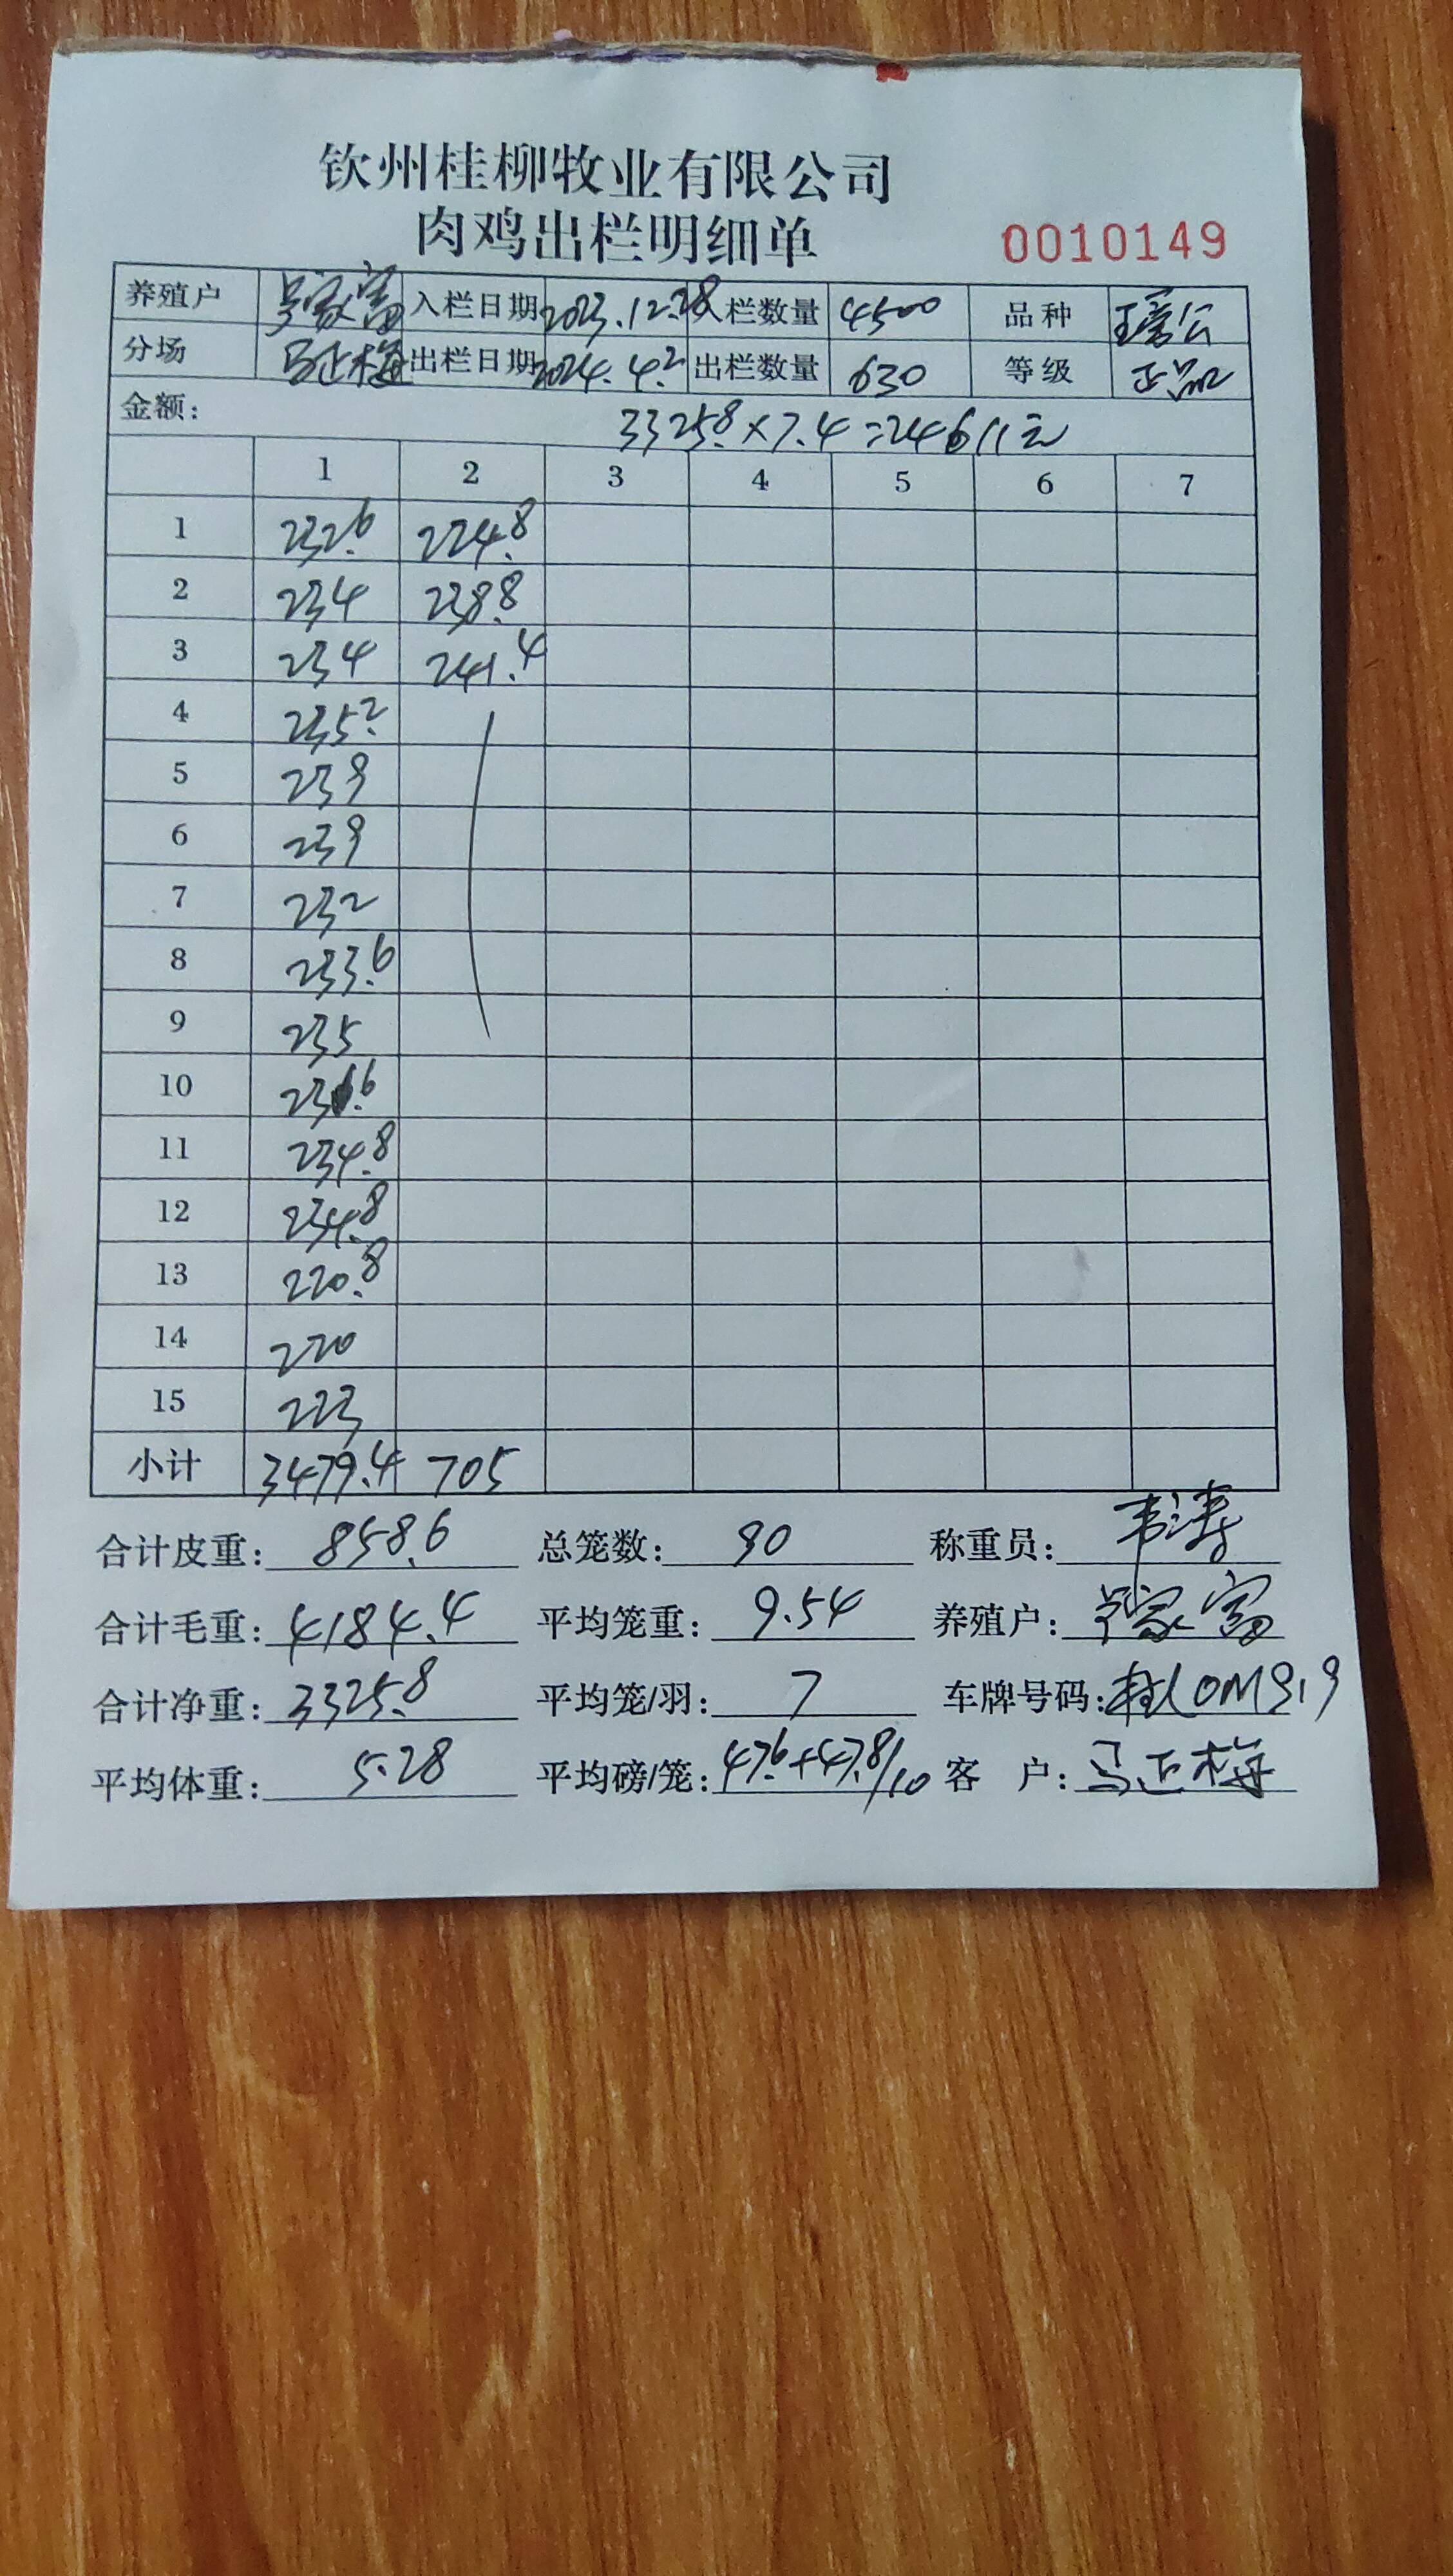 钦州桂柳牧业有限公司
肉鸡出栏明细单 0010149
养殖户 家富 入栏日期 2023.12.28 入栏数量 4500 品种 公
分场 马正梅 出栏日期 2024.4.2 出栏数量 630 等级 正品
金额: 3325.8×7.4=24611元
1 2 3 4 5 6 7
1 232.6 224.8
2 234 238.8
3 234 241.4
4 235.2
5 239
6 239
7 232
8 233.6
9 235
10 23.6
11 234.8
12 234.8
13 220.8
14 220
15 223
小计 3479.4 705
合计皮重: 858.6 总笼数: 90 称重员: 韦涛
合计毛重: 4184.4 平均笼重: 9.54 养殖户: 家富
合计净重: 3325.8 平均笼/羽: 7 车牌号码: 桂L0M919
平均体重: 5.28 平均磅/笼: 47.6+47.8/10 客 户: 马正梅